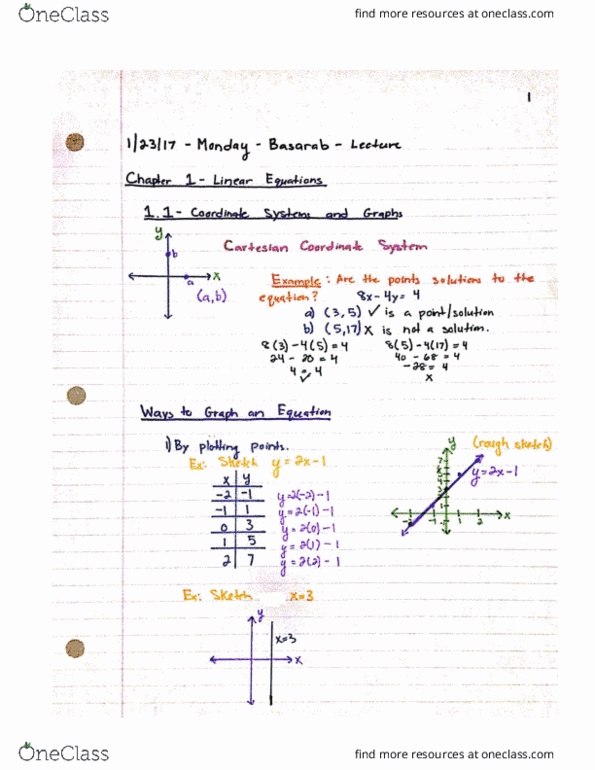 OneClass
find more resources at oneclass.com
1
1/23/17 - Monday - Basarab - Lecture
Chapter 1 - Linear Equations
1.1 - Coordinate Systems and Graphs
y
b
a
x
(a,b)
Cartesian Coordinate System
Example: Are the points solutions to the
equation? 8x-4y=4
a) (3,5) ✓ is a point/solution
b) (5,17) X is not a solution.
8(3)-4(5)=4
24-20=4
4=4
✓
8(5)-4(17)=4
40-68=4
-28=4
x
Ways to Graph an Equation
1) By plotting points.
Ex: Sketch y=2x-1
x y
-2 -1 y=2(-2)-1
-1 1 y=2(-1)-1
0 3 y=2(0)-1
1 5 y=2(1)-1
2 7 y=2(2)-1
y
(rough sketch)
y=2x-1
-2 -1 1 2 x
Ex: Sketch x=3
y
x=3
x
OneClass
find more resources at oneclass.com